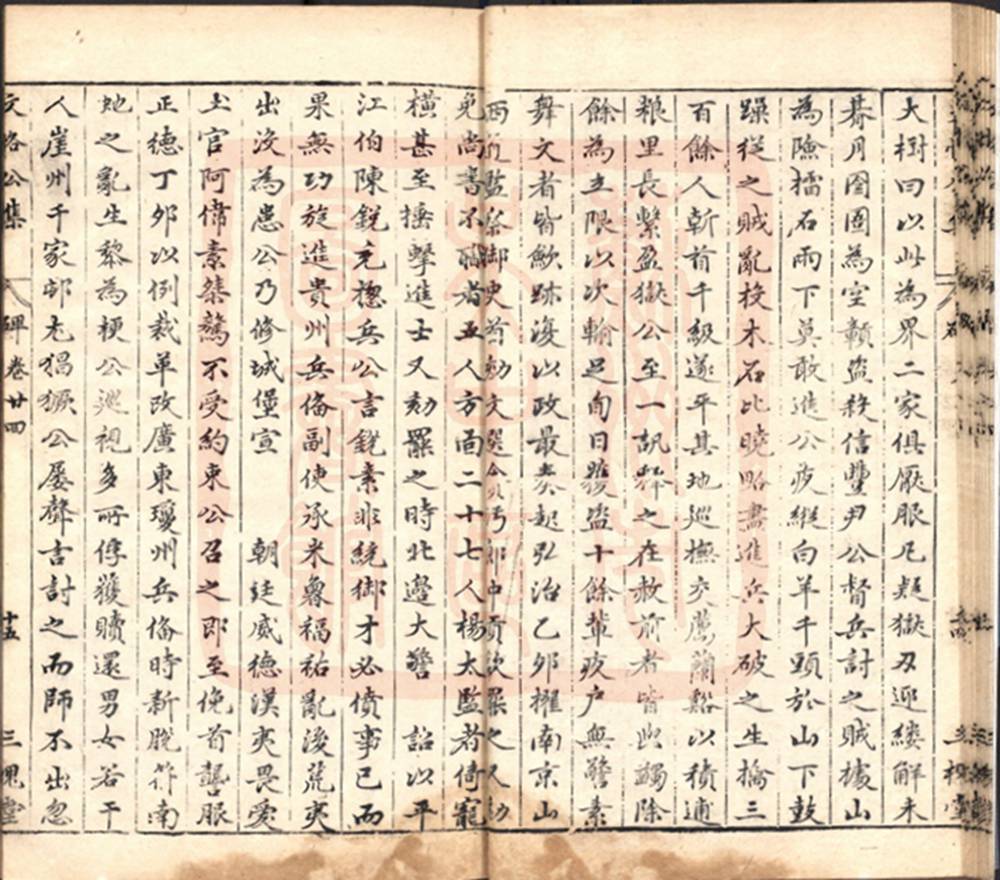 大樹曰以此為界二家俱厭服凡疑獄刃迎縷解未
朞月囹圄為空贛盜殺信豐尹公督兵討之賊據山
為險檑石雨下莫敢進公夜縱白羊千頭於山下鼓
躁從之賊亂投木石比曉略盡進兵大破之生擒三
百餘人斬首千級遂平其地巡撫交薦蘭谿以積逋
糧里長繫盈獄公至一訊釋之在赦前者皆此蠲除
餘為立限以次輸足旬日獲盜十餘輩夜户無警素
舞文者皆歛跡後以政最奏起弘治乙卯擢南京山
西道監察御史首劾文選
免尚書不職者五人方面二十七人楊太監者倚寵
橫甚至捶擊進士又劾罷之時北邊大警 詔以平
江伯陳銳充摠兵公言銳素非統御才必僨事已而
果無功旋進貴州兵偹副使承米魯福祐亂後荒夷
出沒為患公乃修城堡宣 朝廷威德漢夷畏愛
土官阿傋素桀驁不受約束公召之即至俛首聾服
正德丁夘以例裁革改廣東瓊州兵偹時新脫符南
虵之亂生黎為梗公巡視多所俘獲贖還男女若干
人崖州千家邨尤猖獗公屡聲言討之而師不出忽
文洛公集 碑 卷廿四 十五 三槐堂